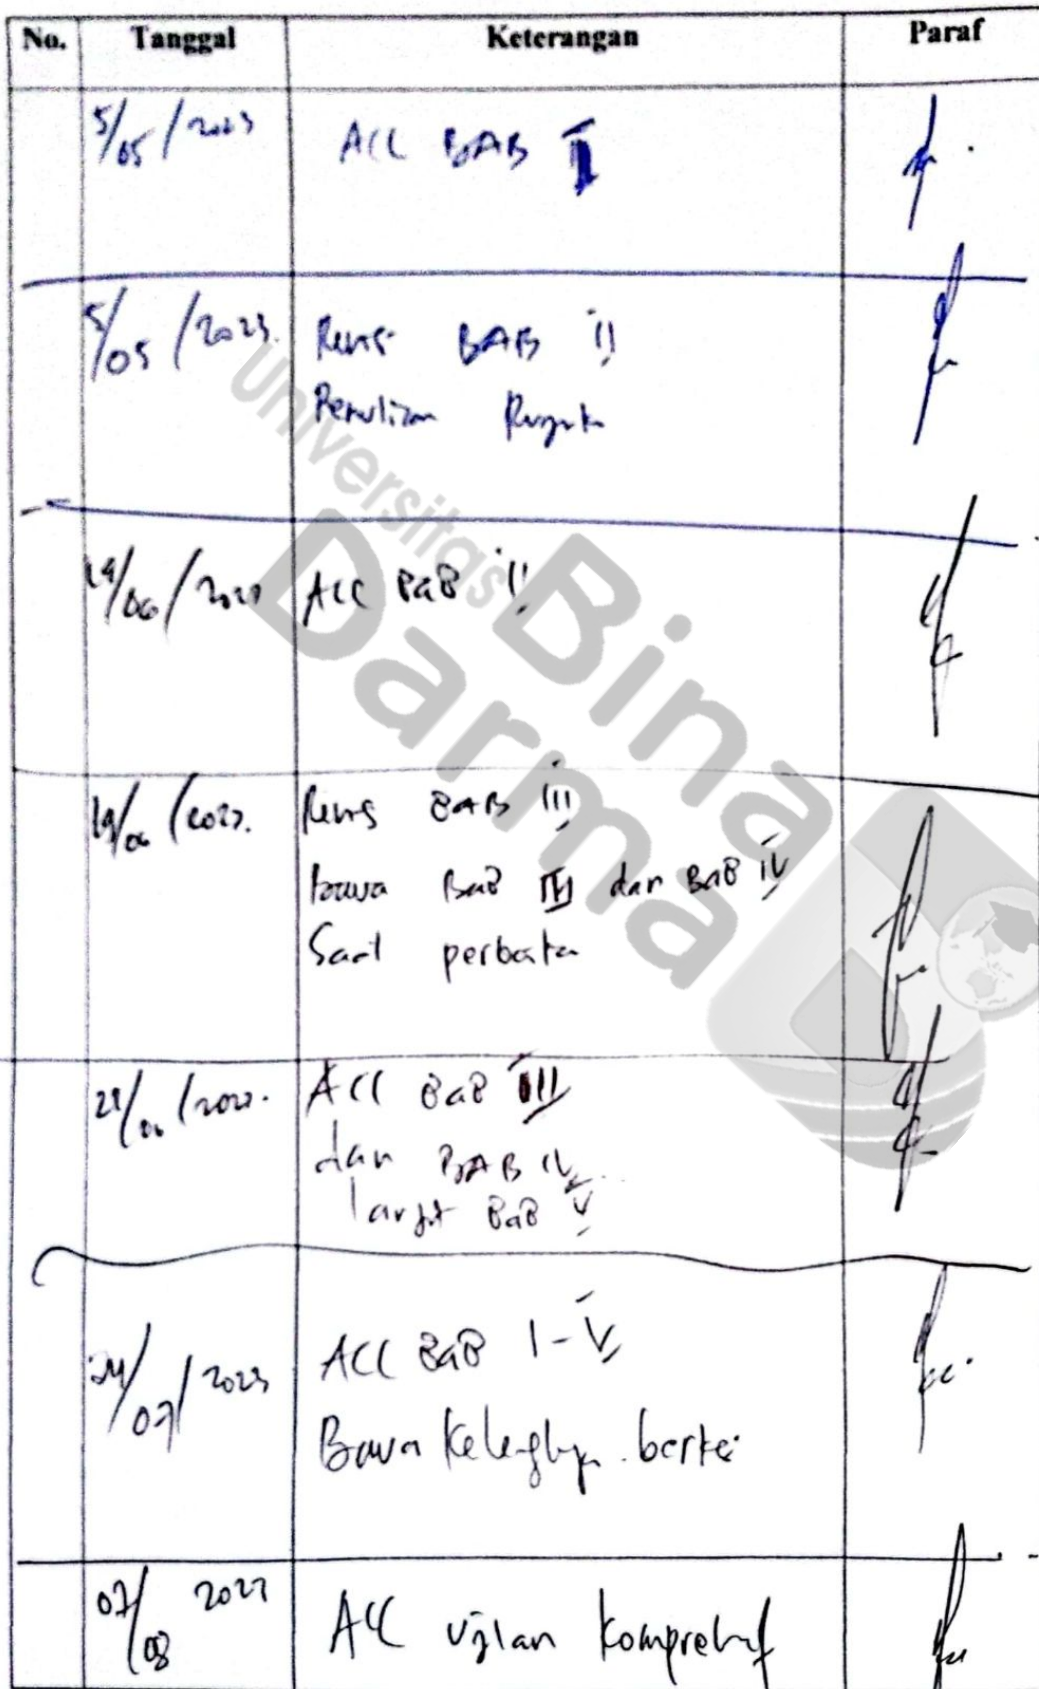 No. Tanggal Keterangan Paraf
5/05/2023 ACC BAB I
5/05/2023. Revisi BAB II
Penulisan Rujukan
19/06/2023 ACC BaB II
19/06/2023. Revisi BAB III
bawa BaB III dan BaB IV
Saat perbaikan
/06/2023. ACC BaB III
dan BAB IV
lanjut BaB V
24/07/2023 ACC BaB I-V
Bawa kelengkapan berkas
07/08 2023 ACC Ujian Komprehif
Universitas
Bina
Darma